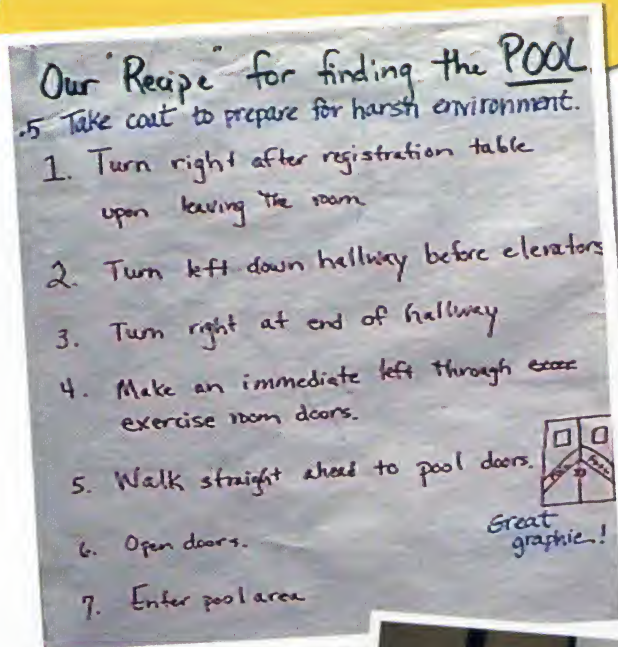 Our "Recipe" for finding the POOL.
.5 Take coat to prepare for harsh environment.
1. Turn right after registration table
upon leaving the room
2. Turn left down hallway before elevators
3. Turn right at end of hallway
4. Make an immediate left through
exercise room doors.
5. Walk straight ahead to pool doors.
Great
graphic!
6. Open doors.
7. Enter pool area